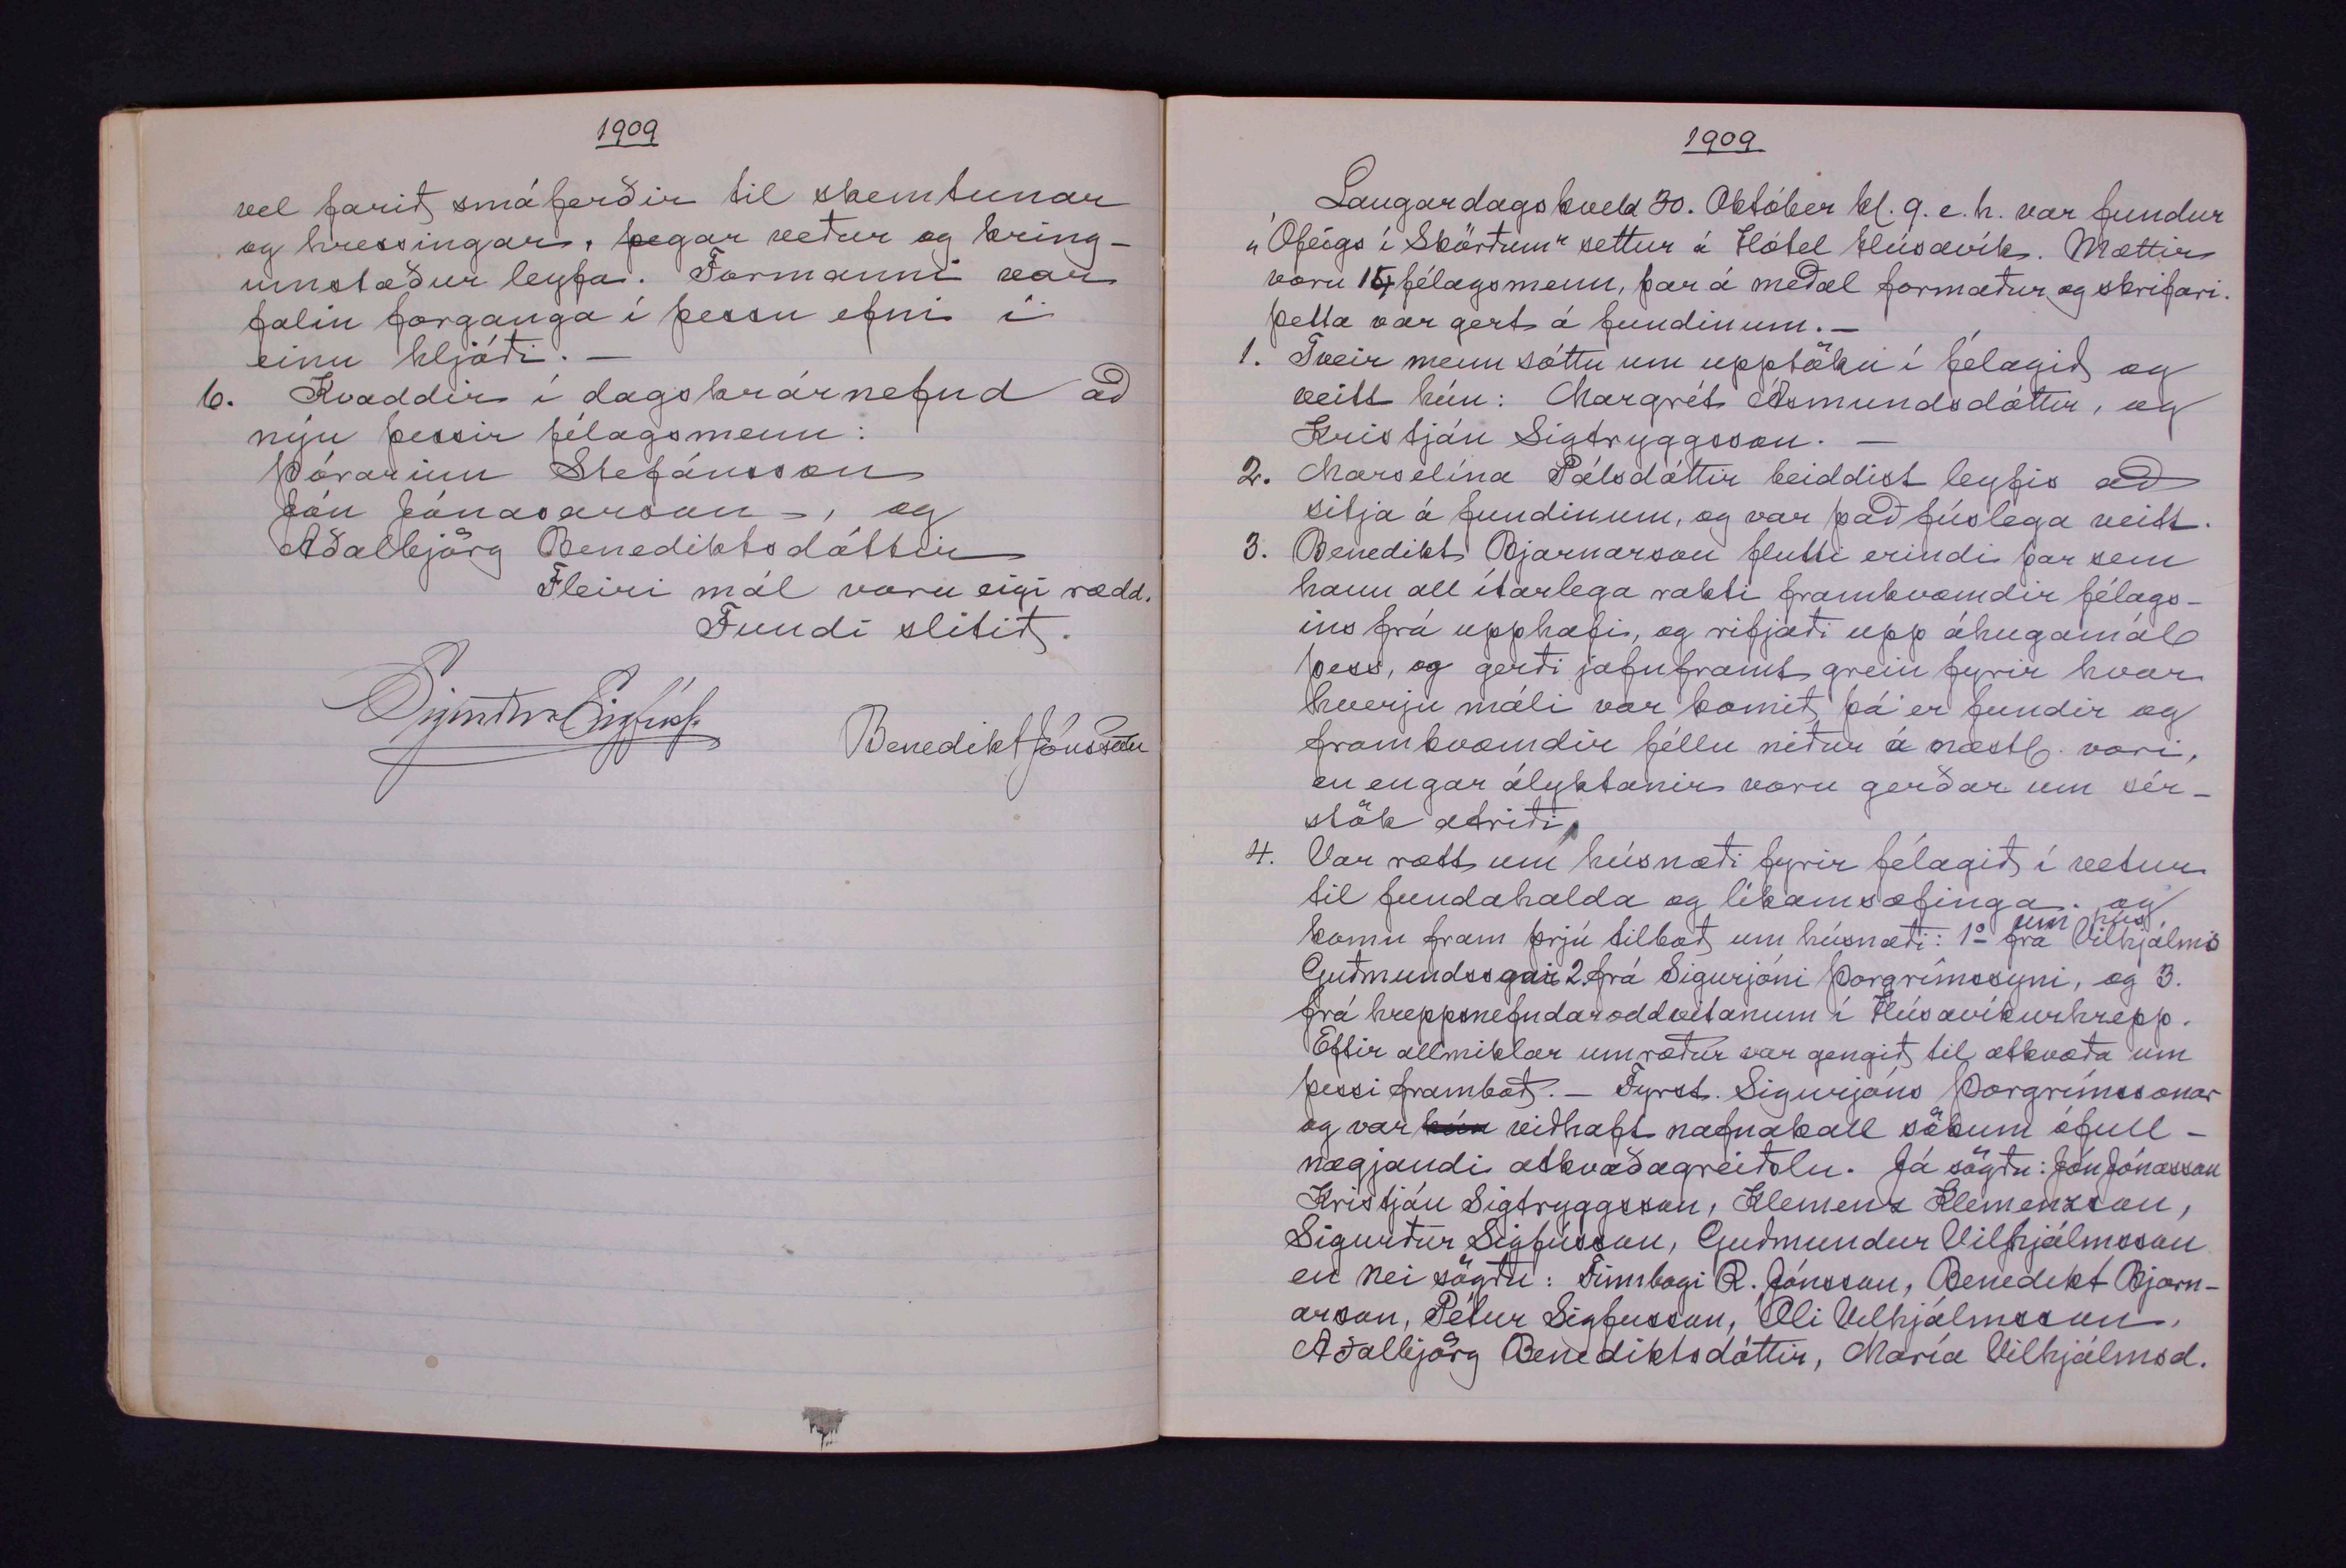 1909
vel farið smáferðir til skemtunar
og hressingar, þegar veður og kring-
umstæður leyfa. Formanni var
falin forganga í þessu efni í
einu hljóði. —
6. Kvaddir í dagskrárnefnd að
nýju þessir félagsmenn:
Þórarinn Stefánsson
Jón Jónasarson -, og
Aðalbjörg Benediktsdóttir
Fleiri mál voru eigi rædd.
Fundi slitið.
Sigurður Sigfúss.
Benedikt Jónsson
1909
Laugardagskveld 30. Október kl. 9. e. h. var fundur
„Ófeigs í Skörðum“ settur á Hótel Húsavík. Mættir
voru 15 félagsmenn, þar á meðal formaður og skrifari.
Þetta var gert á fundinum. —
1. Tveir menn sóttu um upptöku í félagið og
veitt hún: Margrét Ásmundsdóttir, og
Kristján Sigtryggsson. —
2. Marselína Pálsdóttir beiddist leyfis að
sitja á fundinum, og var það fúslega veitt.
3. Benedikt Bjarnarson flutti erindi þar sem
hann all ítarlega rakti framkvæmdir félags-
ins frá upphafi, og rifjaði upp áhugamál
þess, og gerði jafnframt grein fyrir hvar
hverju máli var komið, þá er fundir og
framkvæmdir féllu niður á næstl. vori,
en engar ályktanir voru gerðar um sér-
stök atriði.
4. Var rætt um húsnæði fyrir félagið í vetur
til fundahalda og líkamsæfinga. og
komu fram þrjú tilboð um húsnæði: 1º frá um hús Vilhjálms
Guðmundssonar 2. frá Sigurjóni Þorgrímssyni, og 3.
frá hreppsnefndaroddvitanum í Húsavíkurhrepp.
Eftir allmiklar umræður var gengið til atkvæða um
þessi framboð. — Fyrst. Sigurjóns Þorgrímssonar
og var hún viðhaft nafnakall sökum ófull-
nægjandi atkvæðagreiðslu. Já sögðu: Jón Jónasson
Kristján Sigtryggsson, Klemenz Klemenzson,
Sigurður Sigfússon, Guðmundur Vilhjálmsson
en nei sögðu: Finnbogi R. Jónsson, Benedikt Bjarn-
arson, Pétur Sigfússon, Óli Vilhjálmsson,
Aðalbjörg Benediktsdóttir, María Vilhjálmsd.